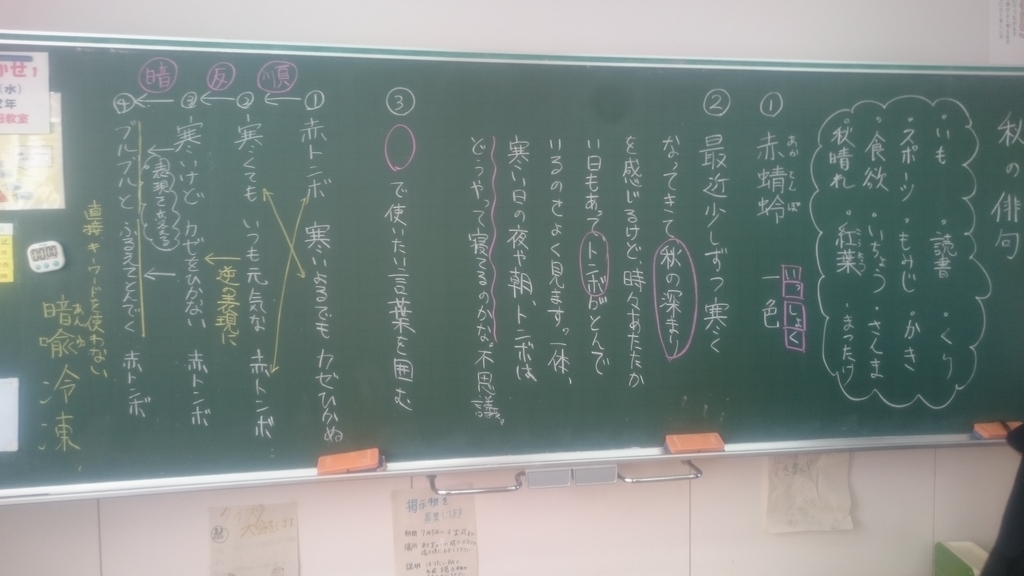 秋の俳句
・いも ・読書 ・くり
・スポーツ ・もみじ ・かき
・食欲 ・いちょう ・さんま
・秋晴れ ・紅葉 ・まつたけ
① 赤蜻蛉 一色
あか とんぼ いっしょく
② 最近少しずつ寒く
なってきて秋の深まり
を感じるけど、時々あたたか
い日もあってトンボがとんで
いるのをよく見ます。一体、
寒い日の夜や朝、トンボは
どうやって寝るのかな不思議。
③ ○で使いたい言葉を囲む
順
反
暗
① 赤トンボ 寒いよるでも カゼひかぬ
② 寒くても いつも元気な 赤トンボ
逆の表現に
③ 寒いけど カゼをひかない 赤トンボ
表現を
④ ブルブルと ふるえてとんでく 赤トンボ
直接キーワードを使わない
暗喩冷凍
あんゆ
かせ!
(水)
2年
教室
掲示物を